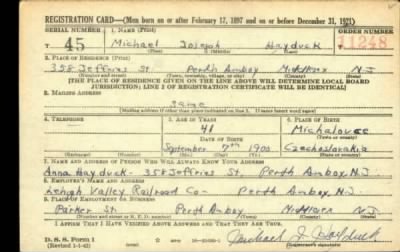 REGISTRATION CARD—(Men born on or after February 17, 1897 and on or before December 31, 1921)
SERIAL NUMBER 1. NAME (Print) ORDER NUMBER
T 45 Michael Joseph Hayduck 11248
(First) (Middle) (Last)
2. PLACE OF RESIDENCE (Print)
358 Jefferies St Perth Amboy Middlesex N.J.
(Number and street) (Town, township, village, or city) (County) (State)
[THE PLACE OF RESIDENCE GIVEN ON THE LINE ABOVE WILL DETERMINE LOCAL BOARD
JURISDICTION; LINE 2 OF REGISTRATION CERTIFICATE WILL BE IDENTICAL]
3. MAILING ADDRESS
Same
(Mailing address if other than place indicated on line 2. If same insert word same)
4. TELEPHONE 5. AGE IN YEARS 6. PLACE OF BIRTH
41 Michalovce
DATE OF BIRTH (Town or county)
September 7th 1900 Czechoslovakia
(Exchange) (Number) (Mo.) (Day) (Yr.) (State or country)
7. NAME AND ADDRESS OF PERSON WHO WILL ALWAYS KNOW YOUR ADDRESS
Anna Hayduck - 358 Jefferies St, Perth Amboy, N.J.
8. EMPLOYER'S NAME AND ADDRESS
Lehigh Valley Railroad Co - Perth Amboy, N.J.
9. PLACE OF EMPLOYMENT OR BUSINESS
Parker St. Perth Amboy Middlesex N.J.
(Number and street or R. F. D. number) (Town) (County) (State)
I AFFIRM THAT I HAVE VERIFIED ABOVE ANSWERS AND THAT THEY ARE TRUE.
D. S. S. Form 1
(Revised 1-1-42) (over) Michael J. Hayduck
(Registrant's signature)